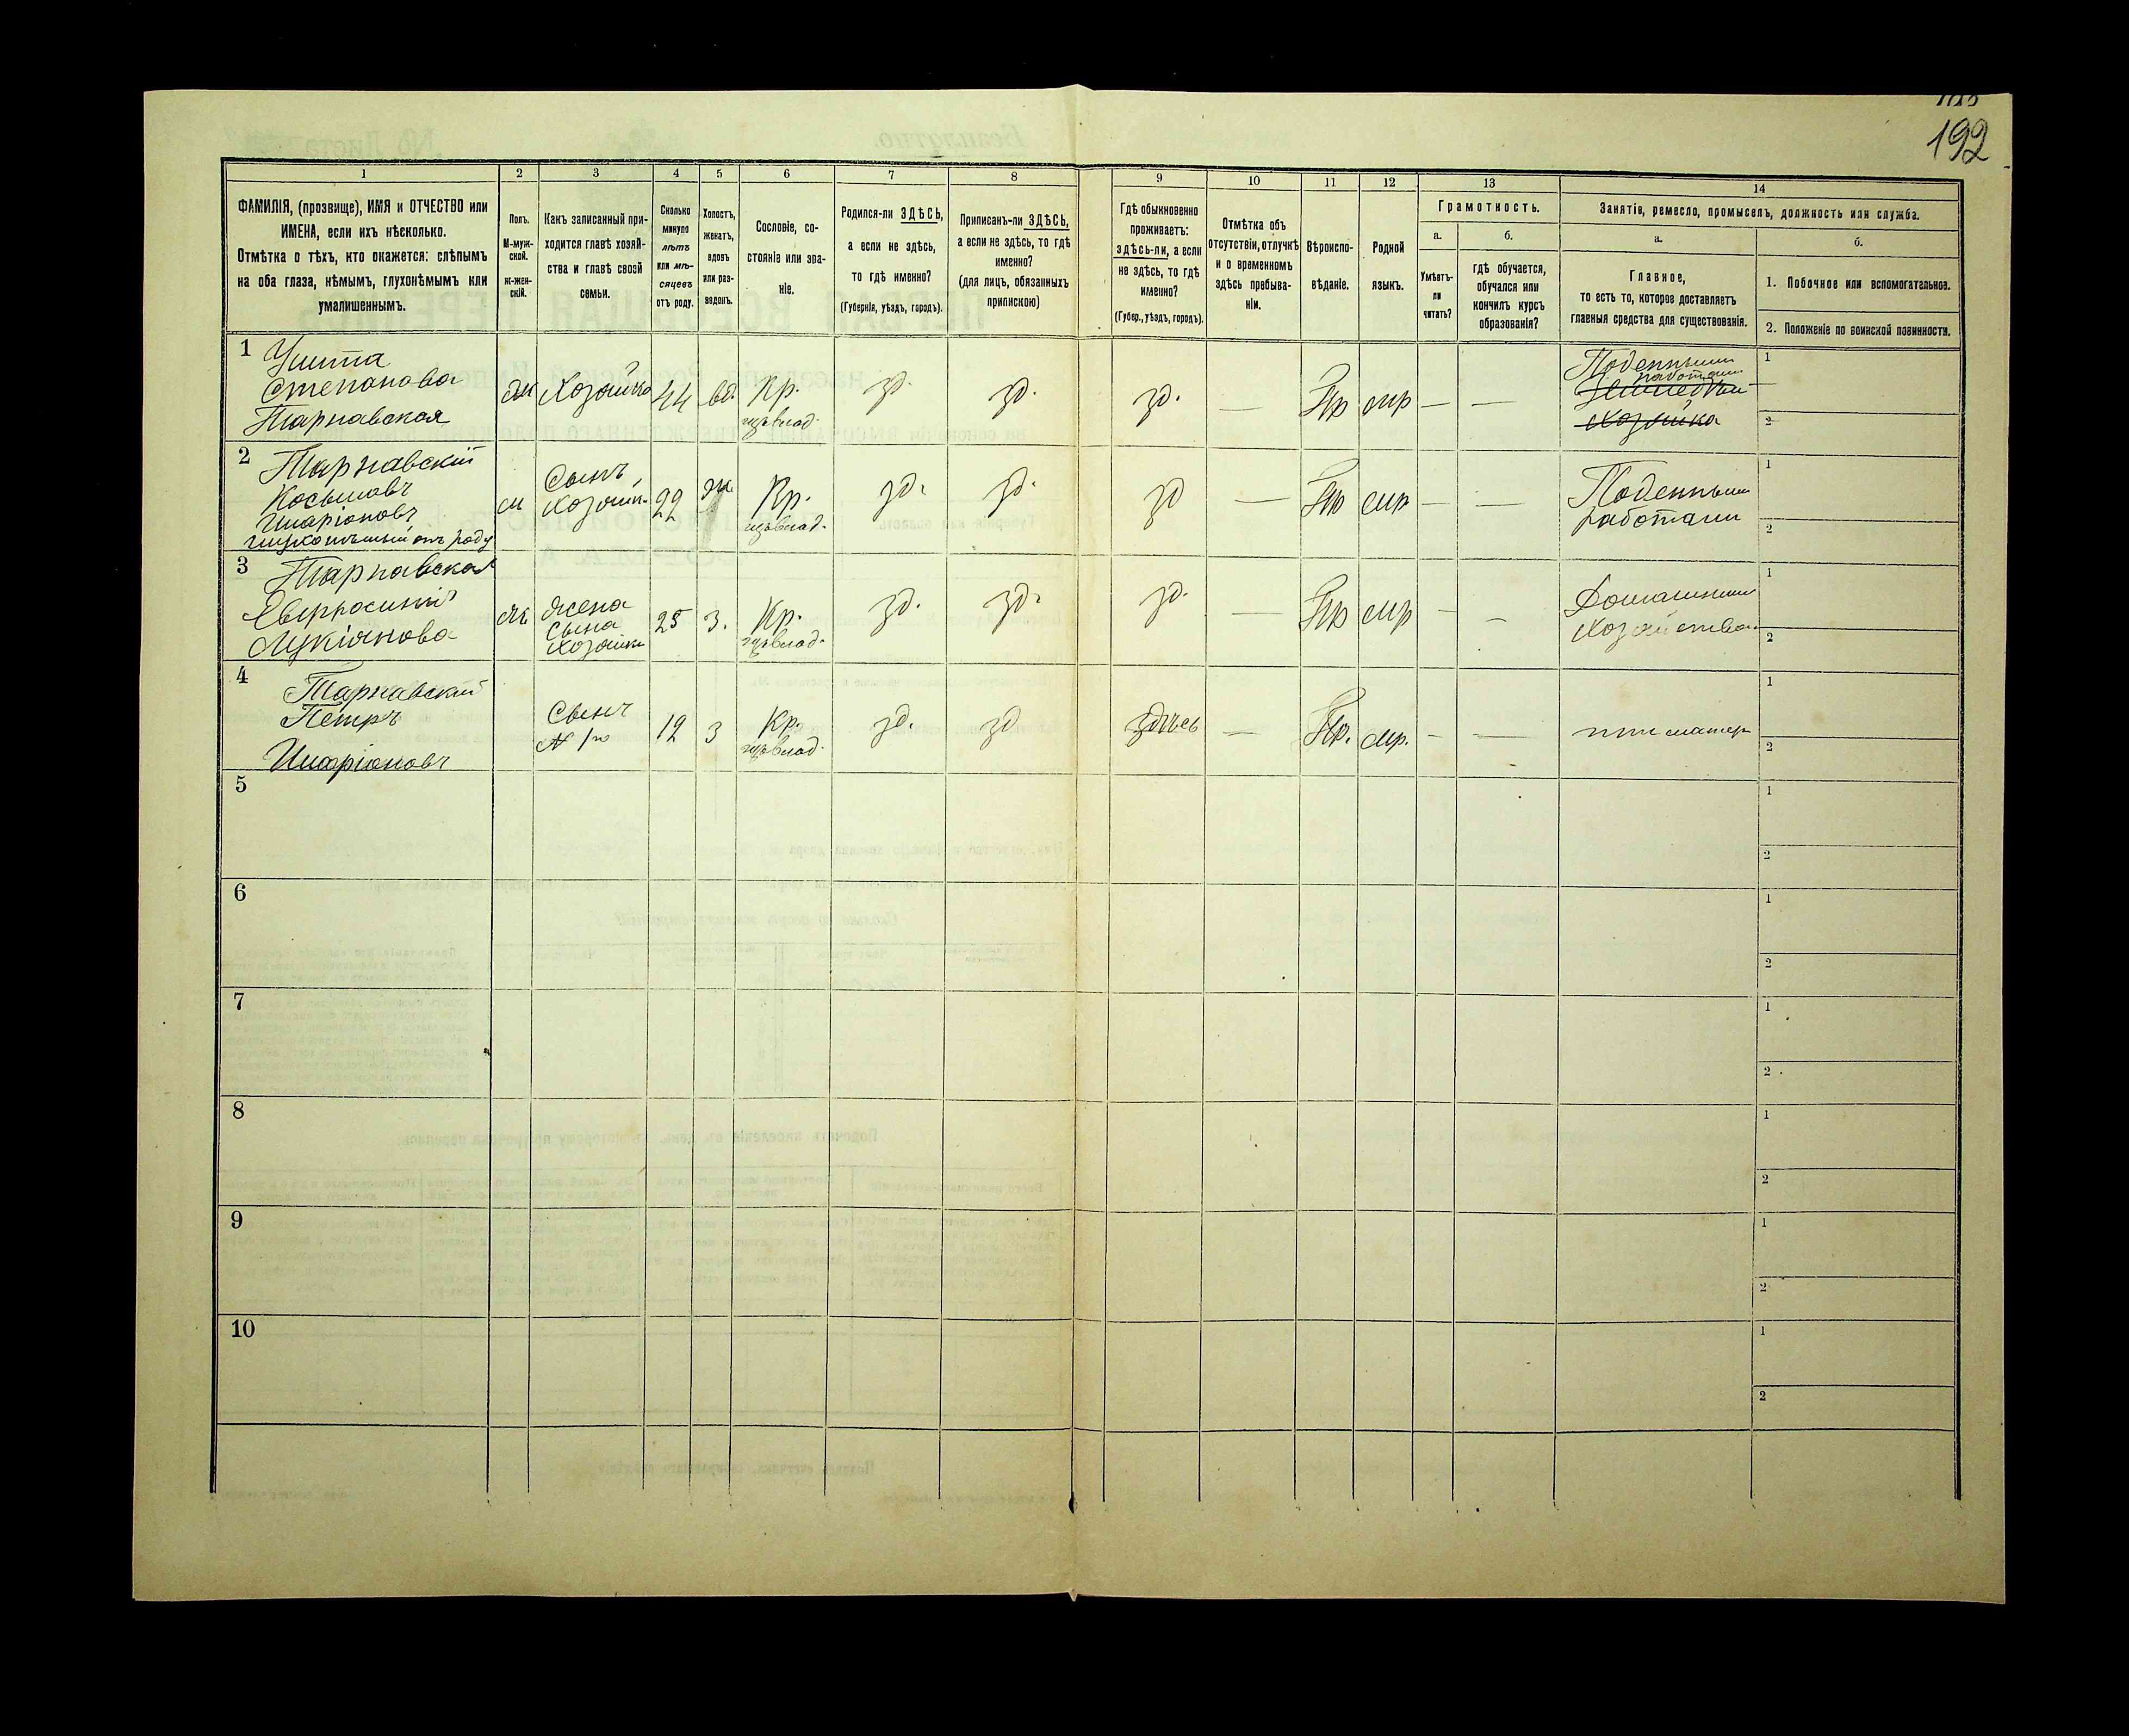 192
1 2 3 4 5 6 7 8 9 10 11 12 13 14
ФАМИЛІЯ, (прозвище), ИМЯ и ОТЧЕСТВО или
ИМЕНА, если ихъ нѣсколько.
Отмѣтка о тѣхъ, кто окажется: слѣпымъ
на оба глаза, нѣмымъ, глухонѣмымъ или
умалишеннымъ.
Полъ.
М-муж-
ской.
ж-жен-
скій.
Какъ записанный при-
ходится главѣ хозяй-
ства и главѣ своей
семьи.
Сколько
минуло
лѣтъ
или мѣ-
сяцевъ
отъ роду.
Холостъ,
женатъ,
вдовъ
или раз-
веденъ.
Сословіе, со-
стояніе или зва-
ніе.
Родился-ли ЗДѢСЬ,
а если не здѣсь,
то гдѣ именно?
(Губернія, уѣздъ, городъ).
Приписанъ-ли ЗДѢСЬ,
а если не здѣсь, то гдѣ
именно?
(для лицъ, обязанныхъ
припискою)
Гдѣ обыкновенно
проживаетъ:
здѣсь-ли, а если
не здѣсь, то гдѣ
именно?
(Губер., уѣздъ, городъ).
Отмѣтка объ
отсутствіи, отлучкѣ
и о временномъ
здѣсь пребыва-
ніи.
Вѣроиспо-
вѣданіе.
Родной
языкъ.
Грамотность.
а.
Умѣетъ-
ли
читать?
б.
гдѣ обучается,
обучался или
кончилъ курсъ
образованія?
Занятіе, ремесло, промыселъ, должность или служба.
а.
Главное,
то есть то, которое доставляетъ
главныя средства для существованія.
б.
1. Побочное или вспомогательное.
2. Положеніе по воинской повинности.
1
Степанова
Тарнавская
ж
Хозяйка
44
вд.
Кр.
зд.
зд.
зд.
—
Пр
мр
—
—
Поденныи
Хозяйка
1
2
2
Тарнавскій
Косьмовъ
Иларіоновъ
отъ роду
м
Сынъ
хозяйк.
22
ж
Кр.
зд.
зд.
зд
—
Пр
мр
—
—
Поденныи
работами
1
2
3
Тарнавская
Лукіянова
Жена
сына
хозяйк
25
З.
Кр.
зд.
зд.
зд.
—
Пр
мр
—
—
Домашнии
Хозяйства.
1
2
4
Тарнавский
Петръ
Иларіоновъ
Сынъ
№ 1го
12
З
Кр.
зд.
зд
здѣсь
—
Пр.
мр.
—
—
при матер
1
2
5
1
2
6
1
2
7
1
2
8
1
2
9
1
2
10
1
2